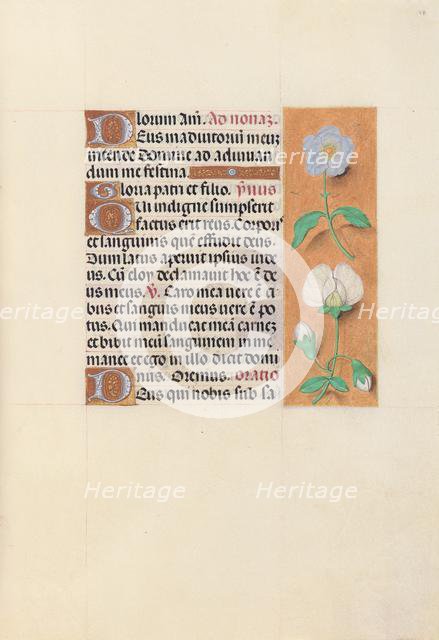 lorum Am̄. Ad nonaz.
Deus in adiutoriū meuz
intende Domine ad adiuuan
dum me festina
Gloria patri et filio. ȳnus
Qui indigne sumpserit
factus erit reus. Corpori
et sanguinis quē effudit deus.
Dum latus aperuit ipsius iude
us. Cū eloy declamauit hoc ē de
us meus. ℣. Caro mea vere ē ci
bus et sanguis meus vere ē po
tus. Qui manducat meā carnez
et bibit meū sanguinem in me
manet et ego in illo dicit domi
nus. Oremus. oratio
Deus qui nobis sub sa
Heritage
Heritage
Heritage
Heritage
Heritage
Heritage